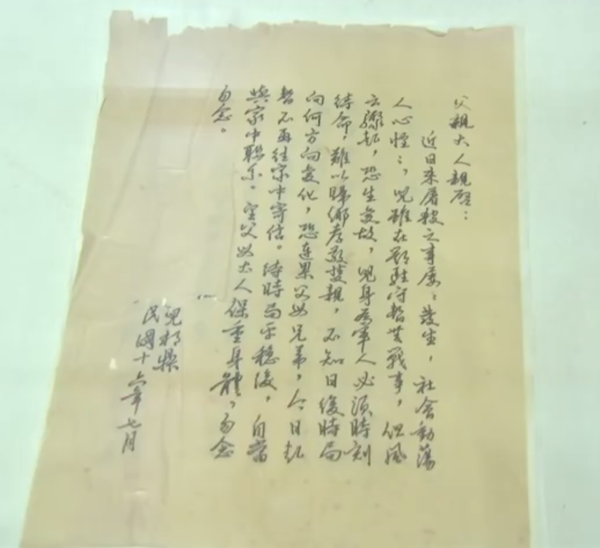 父親大人親啟：
近日來屠殺之事屢々發生，社會動蕩
人心惶々，兒雖在 駐守暫無戰事，但風
雲驟起，恐生變故，兒身為軍人必須時刻
待命，難以歸鄉孝敬雙親，不知日後時局
向何方向變化，恐連累父母兄弟，今日起
暫不再往家中寄信。待時局平穩後，自當
與家中聯系。望父母大人保重身體，勿念
勿念。
兒
民國十六年七月